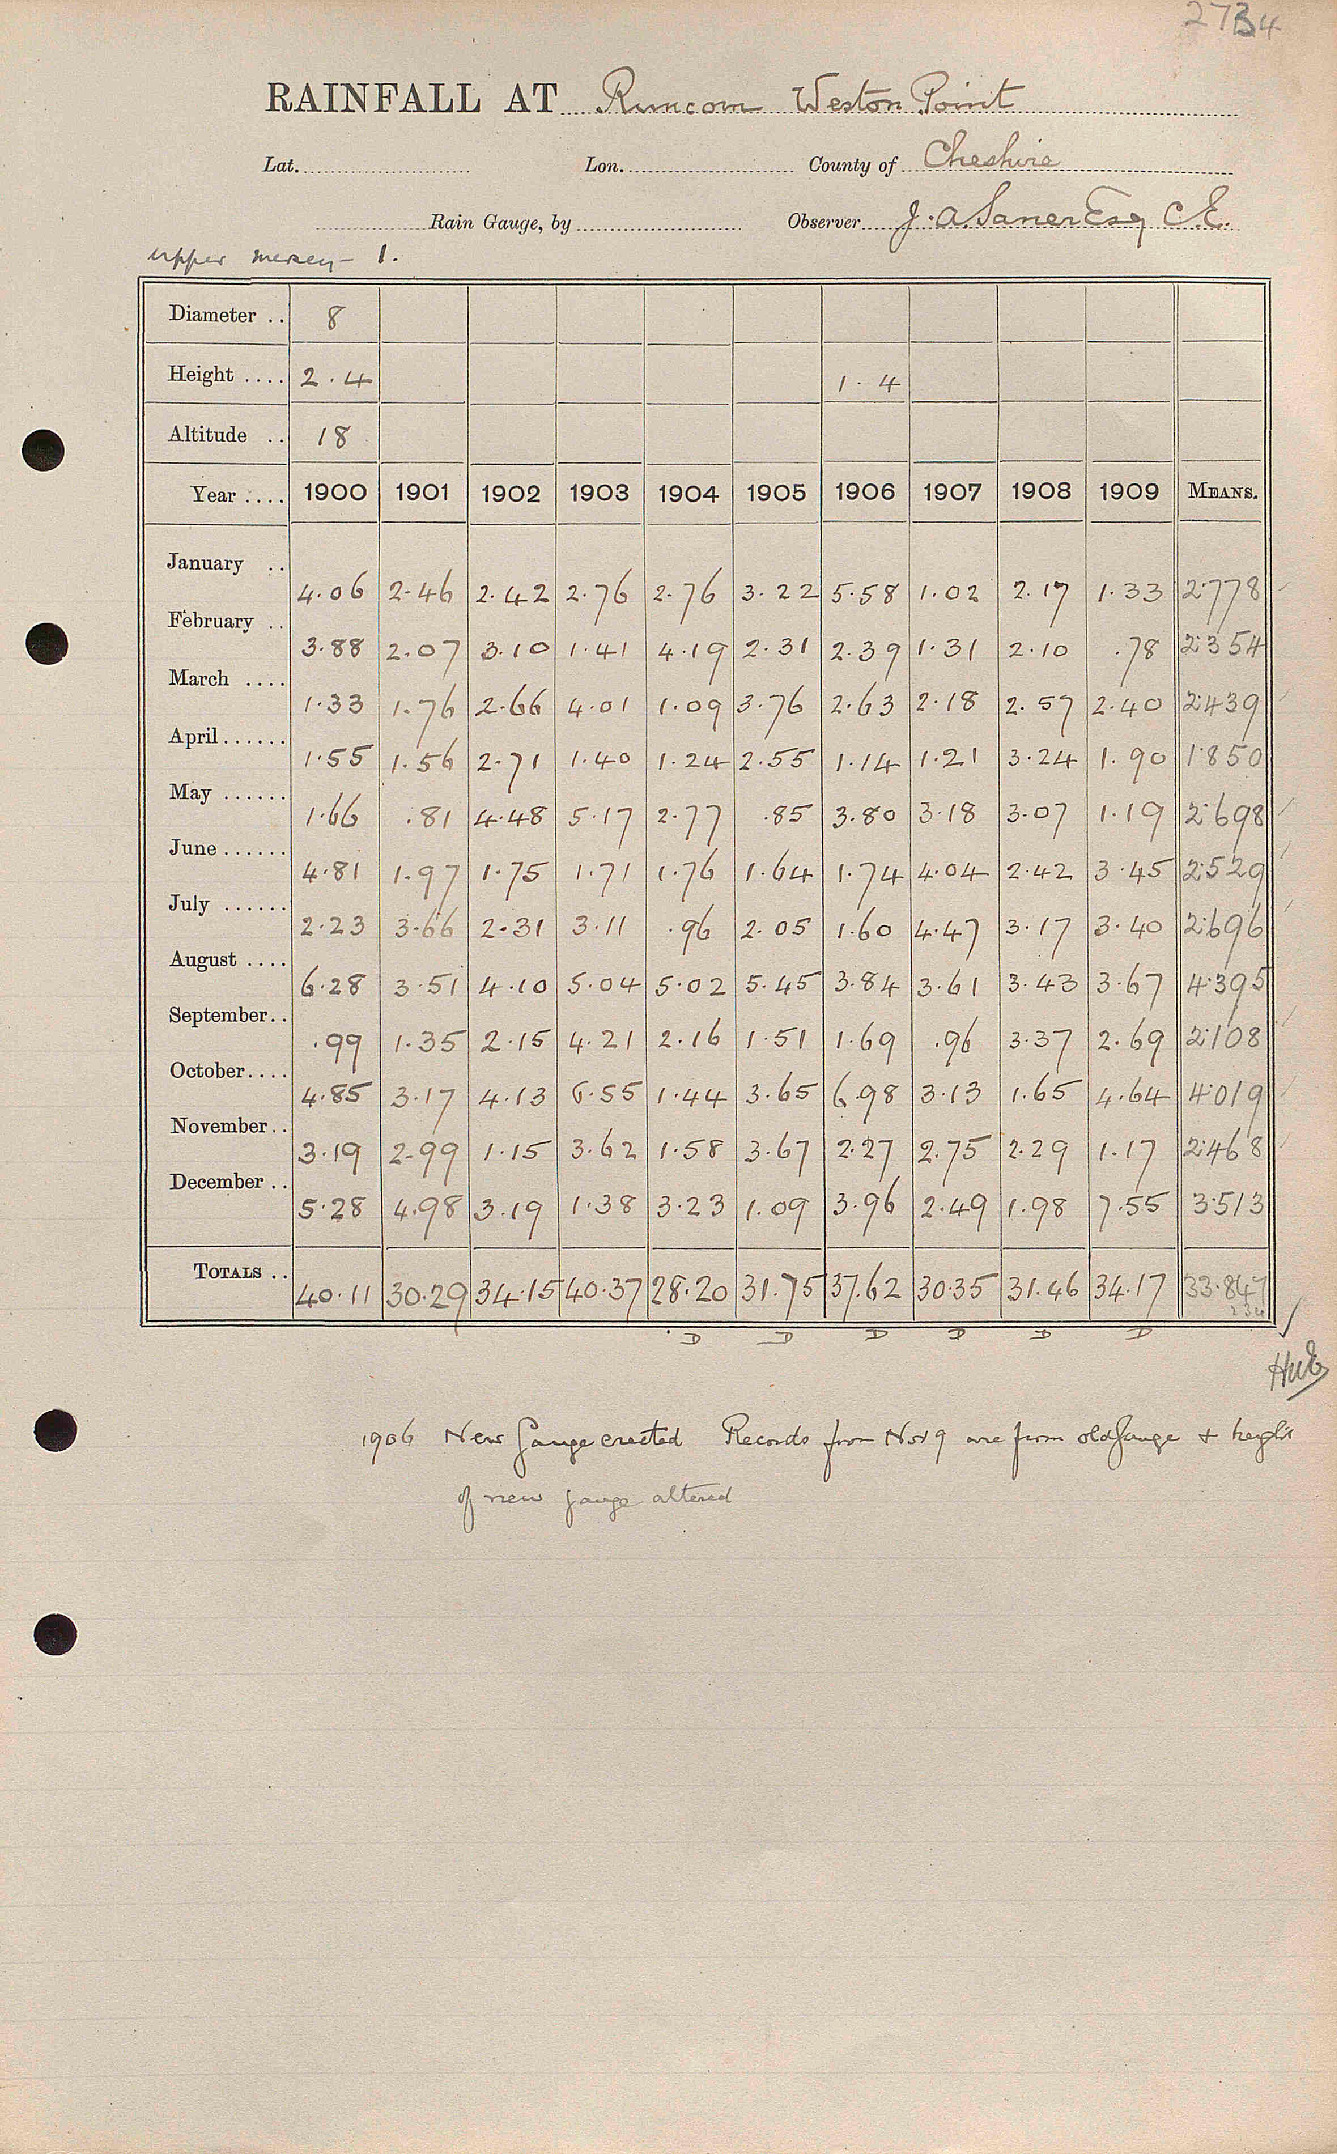 2734
RAINFALL AT Runcorn Weston Point
Lat. Lon. County of Cheshire
Rain Gauge, by Observer J. A. Saner Esq C.E.
upper mersey - 1.
Diameter .. 8
Height .... 2.4 1.4
Altitude .. 18
Year .... 1900 1901 1902 1903 1904 1905 1906 1907 1908 1909 MEANS.
January .. 4.06 2.46 2.42 2.76 2.76 3.22 5.58 1.02 2.17 1.33 2.778
February .. 3.88 2.07 3.10 1.41 4.19 2.31 2.39 1.31 2.10 .78 2.354
March .... 1.33 1.76 2.66 4.01 1.09 3.76 2.63 2.18 2.57 2.40 2.439
April...... 1.55 1.56 2.71 1.40 1.24 2.55 1.14 1.21 3.24 1.90 1.850
May ...... 1.66 .81 4.48 5.17 2.77 .85 3.80 3.18 3.07 1.19 2.698
June ...... 4.81 1.97 1.75 1.71 1.76 1.64 1.74 4.04 2.42 3.45 2.529
July ...... 2.23 3.66 2.31 3.11 .96 2.05 1.60 4.47 3.17 3.40 2.696
August .... 6.28 3.51 4.10 5.04 5.02 5.45 3.84 3.61 3.43 3.67 4.395
September.. .99 1.35 2.15 4.21 2.16 1.51 1.69 .96 3.37 2.69 2.108
October.... 4.85 3.17 4.13 6.55 1.44 3.65 6.98 3.13 1.65 4.64 4.019
November.. 3.19 2.99 1.15 3.62 1.58 3.67 2.27 2.75 2.29 1.17 2.468
December .. 5.28 4.98 3.19 1.38 3.23 1.09 3.96 2.49 1.98 7.55 3.513
TOTALS .. 40.11 30.29 34.15 40.37 28.20 31.75 37.62 30.35 31.46 34.17 33.847
D D D D D D
1906 New Gauge erected Records from Nov 9 are from old Gauge & height
of new gauge altered